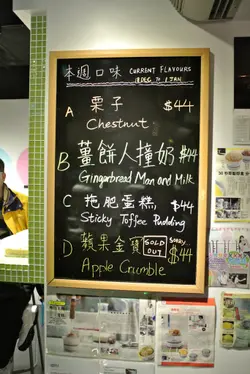 本週口味 CURRENT FLAVOURS
18 DEC TO 1 JAN
A 栗子 $44
Chestnut
B 薑餅人撞奶 $44
Gingerbread Man and Milk
C 拖肥蛋糕 $44
Sticky Toffee Pudding
D 蘋果金寶 SOLD OUT SORRY $44
Apple Crumble